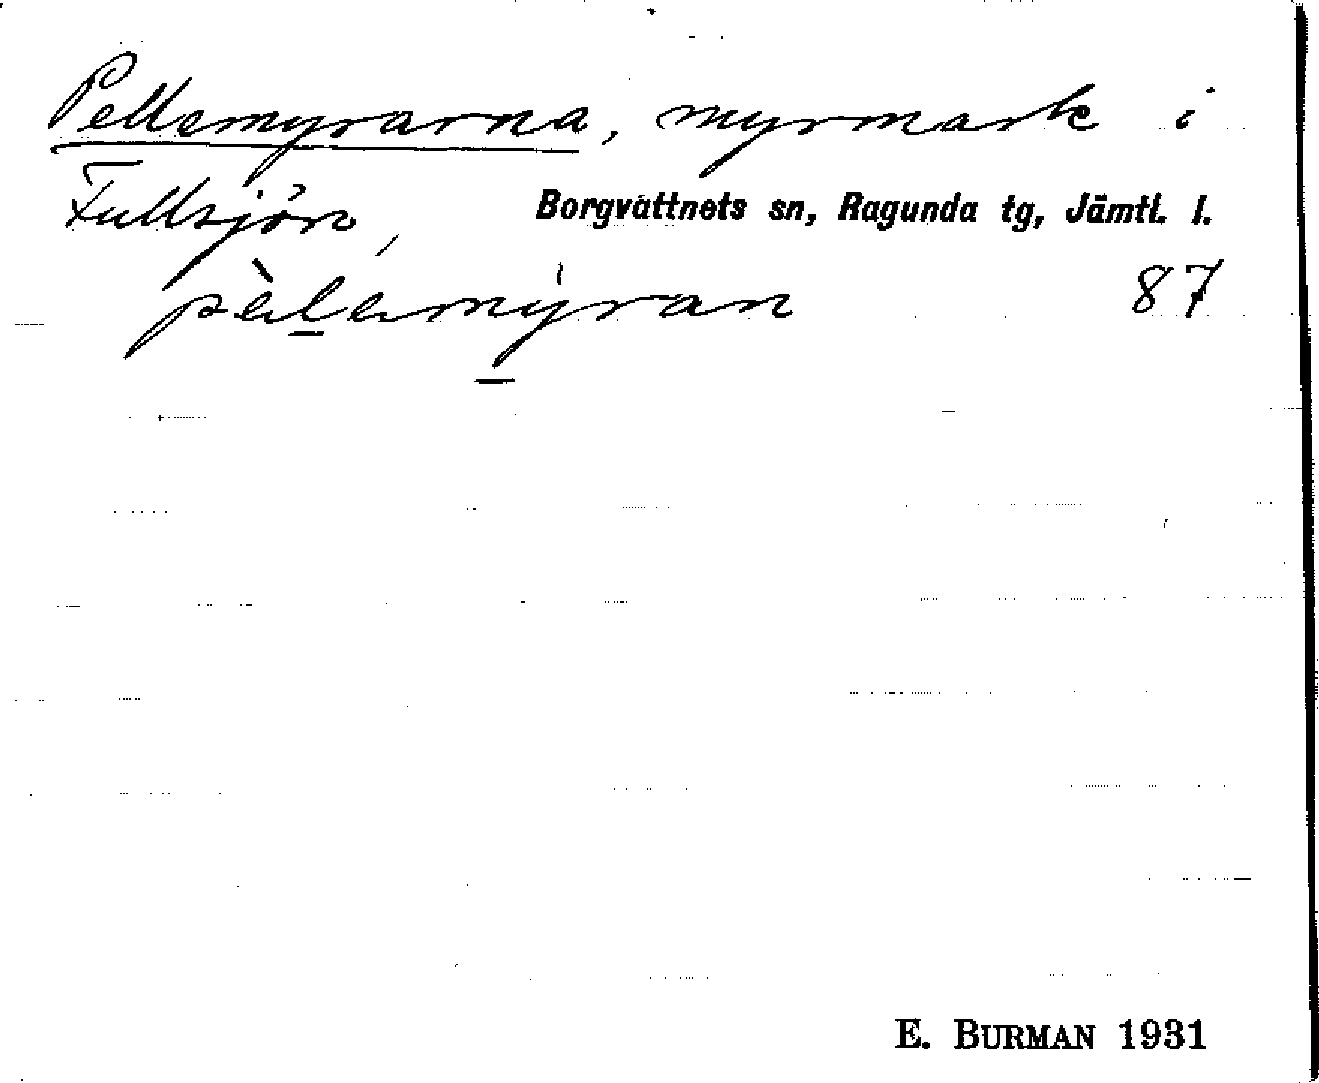 Pellemyrarna, myrmark i
Fullsjön, Borgvattnets sn, Ragunda tg, Jämtl. l.
pèlemýran 87
E. BURMAN 1931